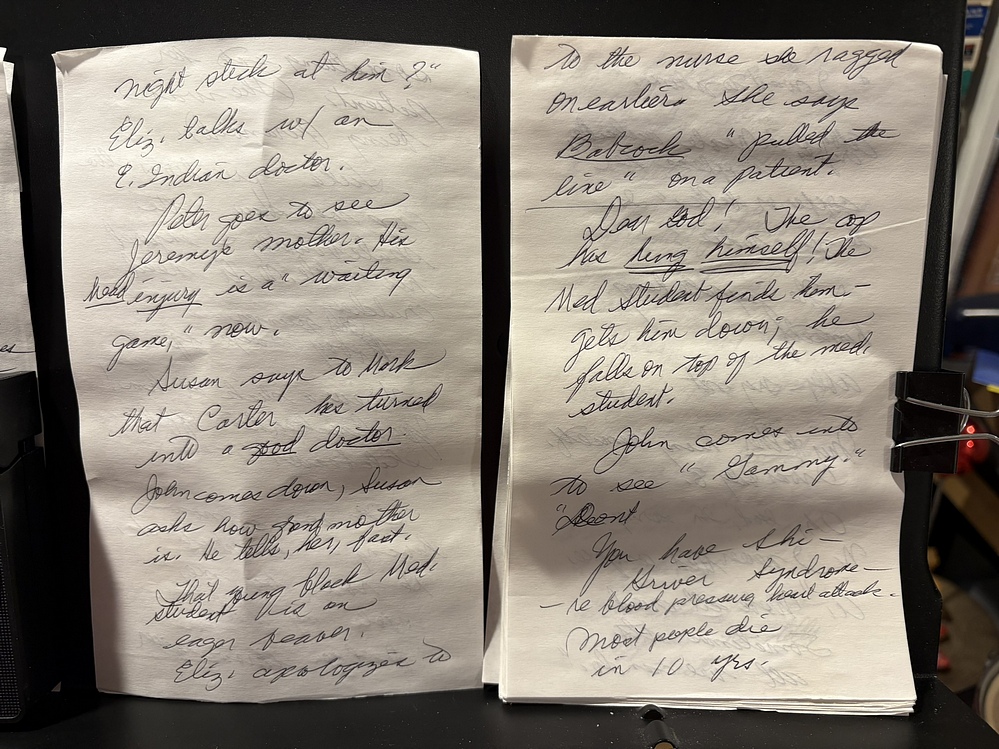 night stick at him?"
Eliz. talks w/ an
E. Indian doctor.
Peter goes to see
Jeremy's mother. His
head injury is a "waiting
game," now.
Susan says to Mark
that Carter has turned
into a good doctor.
John comes down, Susan
asks how grandmother
is. He tells, her, fast.
That young black Med.
student is an
eager beaver.
Eliz. apologizes to
to the nurse she ragged
on earlier. She says
Babcock "pulled the
line" on a patient.
Dear God! The cop
has hung himself! The
Med student finds him-
gets him down; he
falls on top of the med.
student.
John comes into
to see "Gammy."
You have Shi-
Griver Syndrome-
blood pressure, heart attack.
Most people die
in 10 yrs.